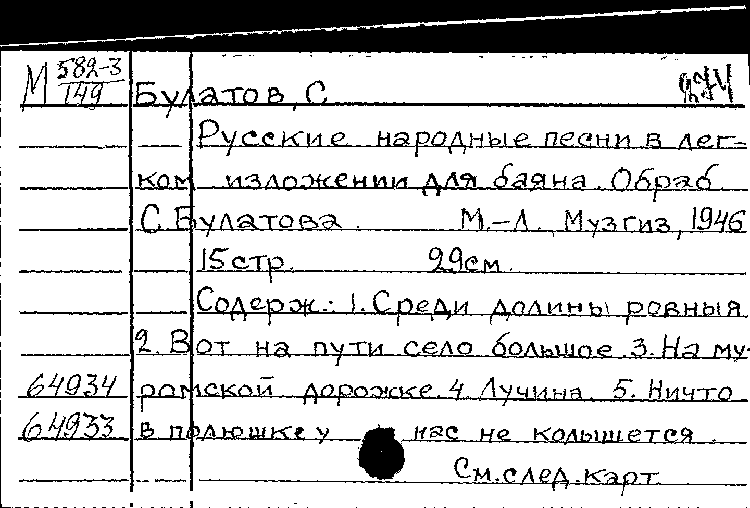 М 582-3
149
Булатов, С
Русские народные песни в лег-
ком изложении для баяна. Обраб
С. Булатова. М.-Л., Музгиз, 1946
15 стр. 29 см.
Содерж.: 1. Среди долины ровныя
2. Вот на пути село большое 3. На му-
64934 ромской дорожке. 4. Лучина. 5. Ничто
64933 в полюшке у нас не колышется.
См. след. карт.